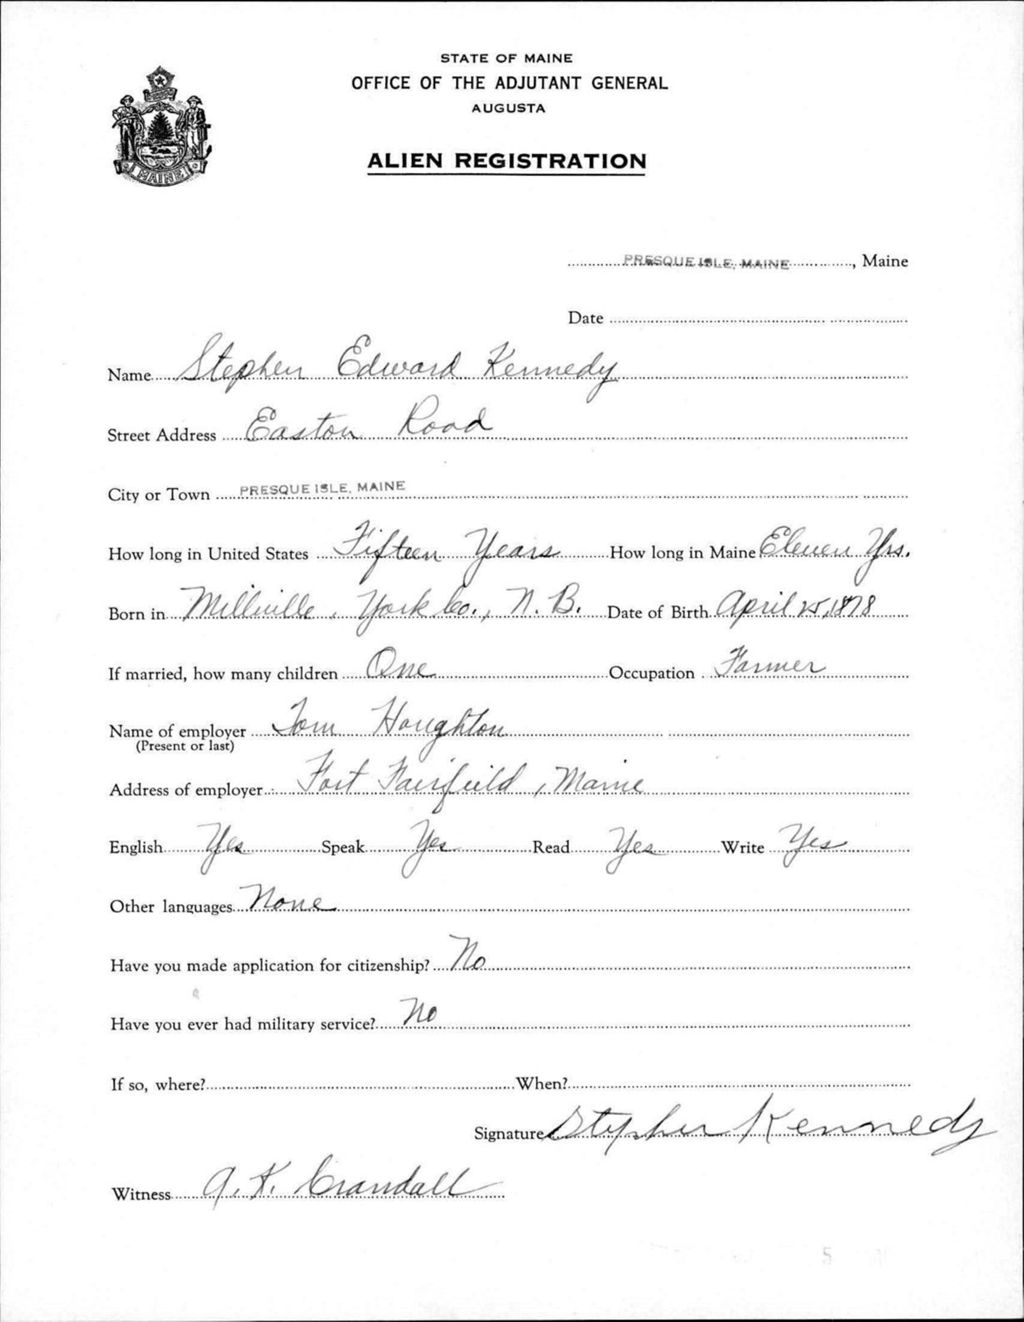 STATE OF MAINE
OFFICE OF THE ADJUTANT GENERAL
AUGUSTA
ALIEN REGISTRATION
MAINE
PRESQUE ISLE, MAINE, Maine
Date
Name Stephen Edward Kennedy
Street Address Easton Road
City or Town PRESQUE ISLE, MAINE
How long in United States Fifteen Years How long in Maine Eleven Yrs.
Born in Millville, York Co., N. B. Date of Birth April 25, 1878
If married, how many children One Occupation Farmer
Name of employer Tom Houghton
(Present or last)
Address of employer Fort Fairfield, Maine
English Yes Speak Yes Read Yes Write Yes
Other languages None
Have you made application for citizenship? No
Have you ever had military service? No
If so, where? When?
Signature Stephen Kennedy
Witness A. K. Crandall